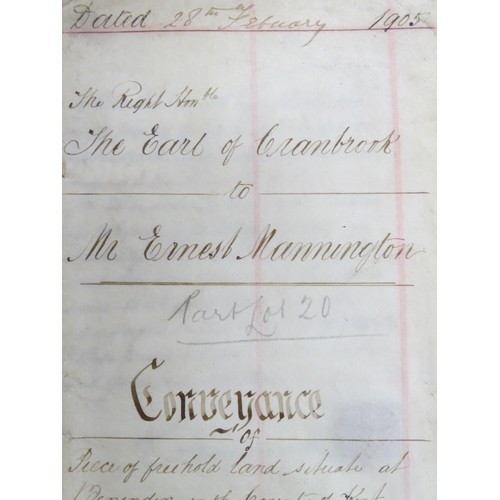 Dated 28th Febuary 1905
The Right Honble
The Earl of Cranbrook
to
Mr Ernest Mannington
Part Lot 20
Conveyance
of
Piece of freehold land situate at
in the County of Kent